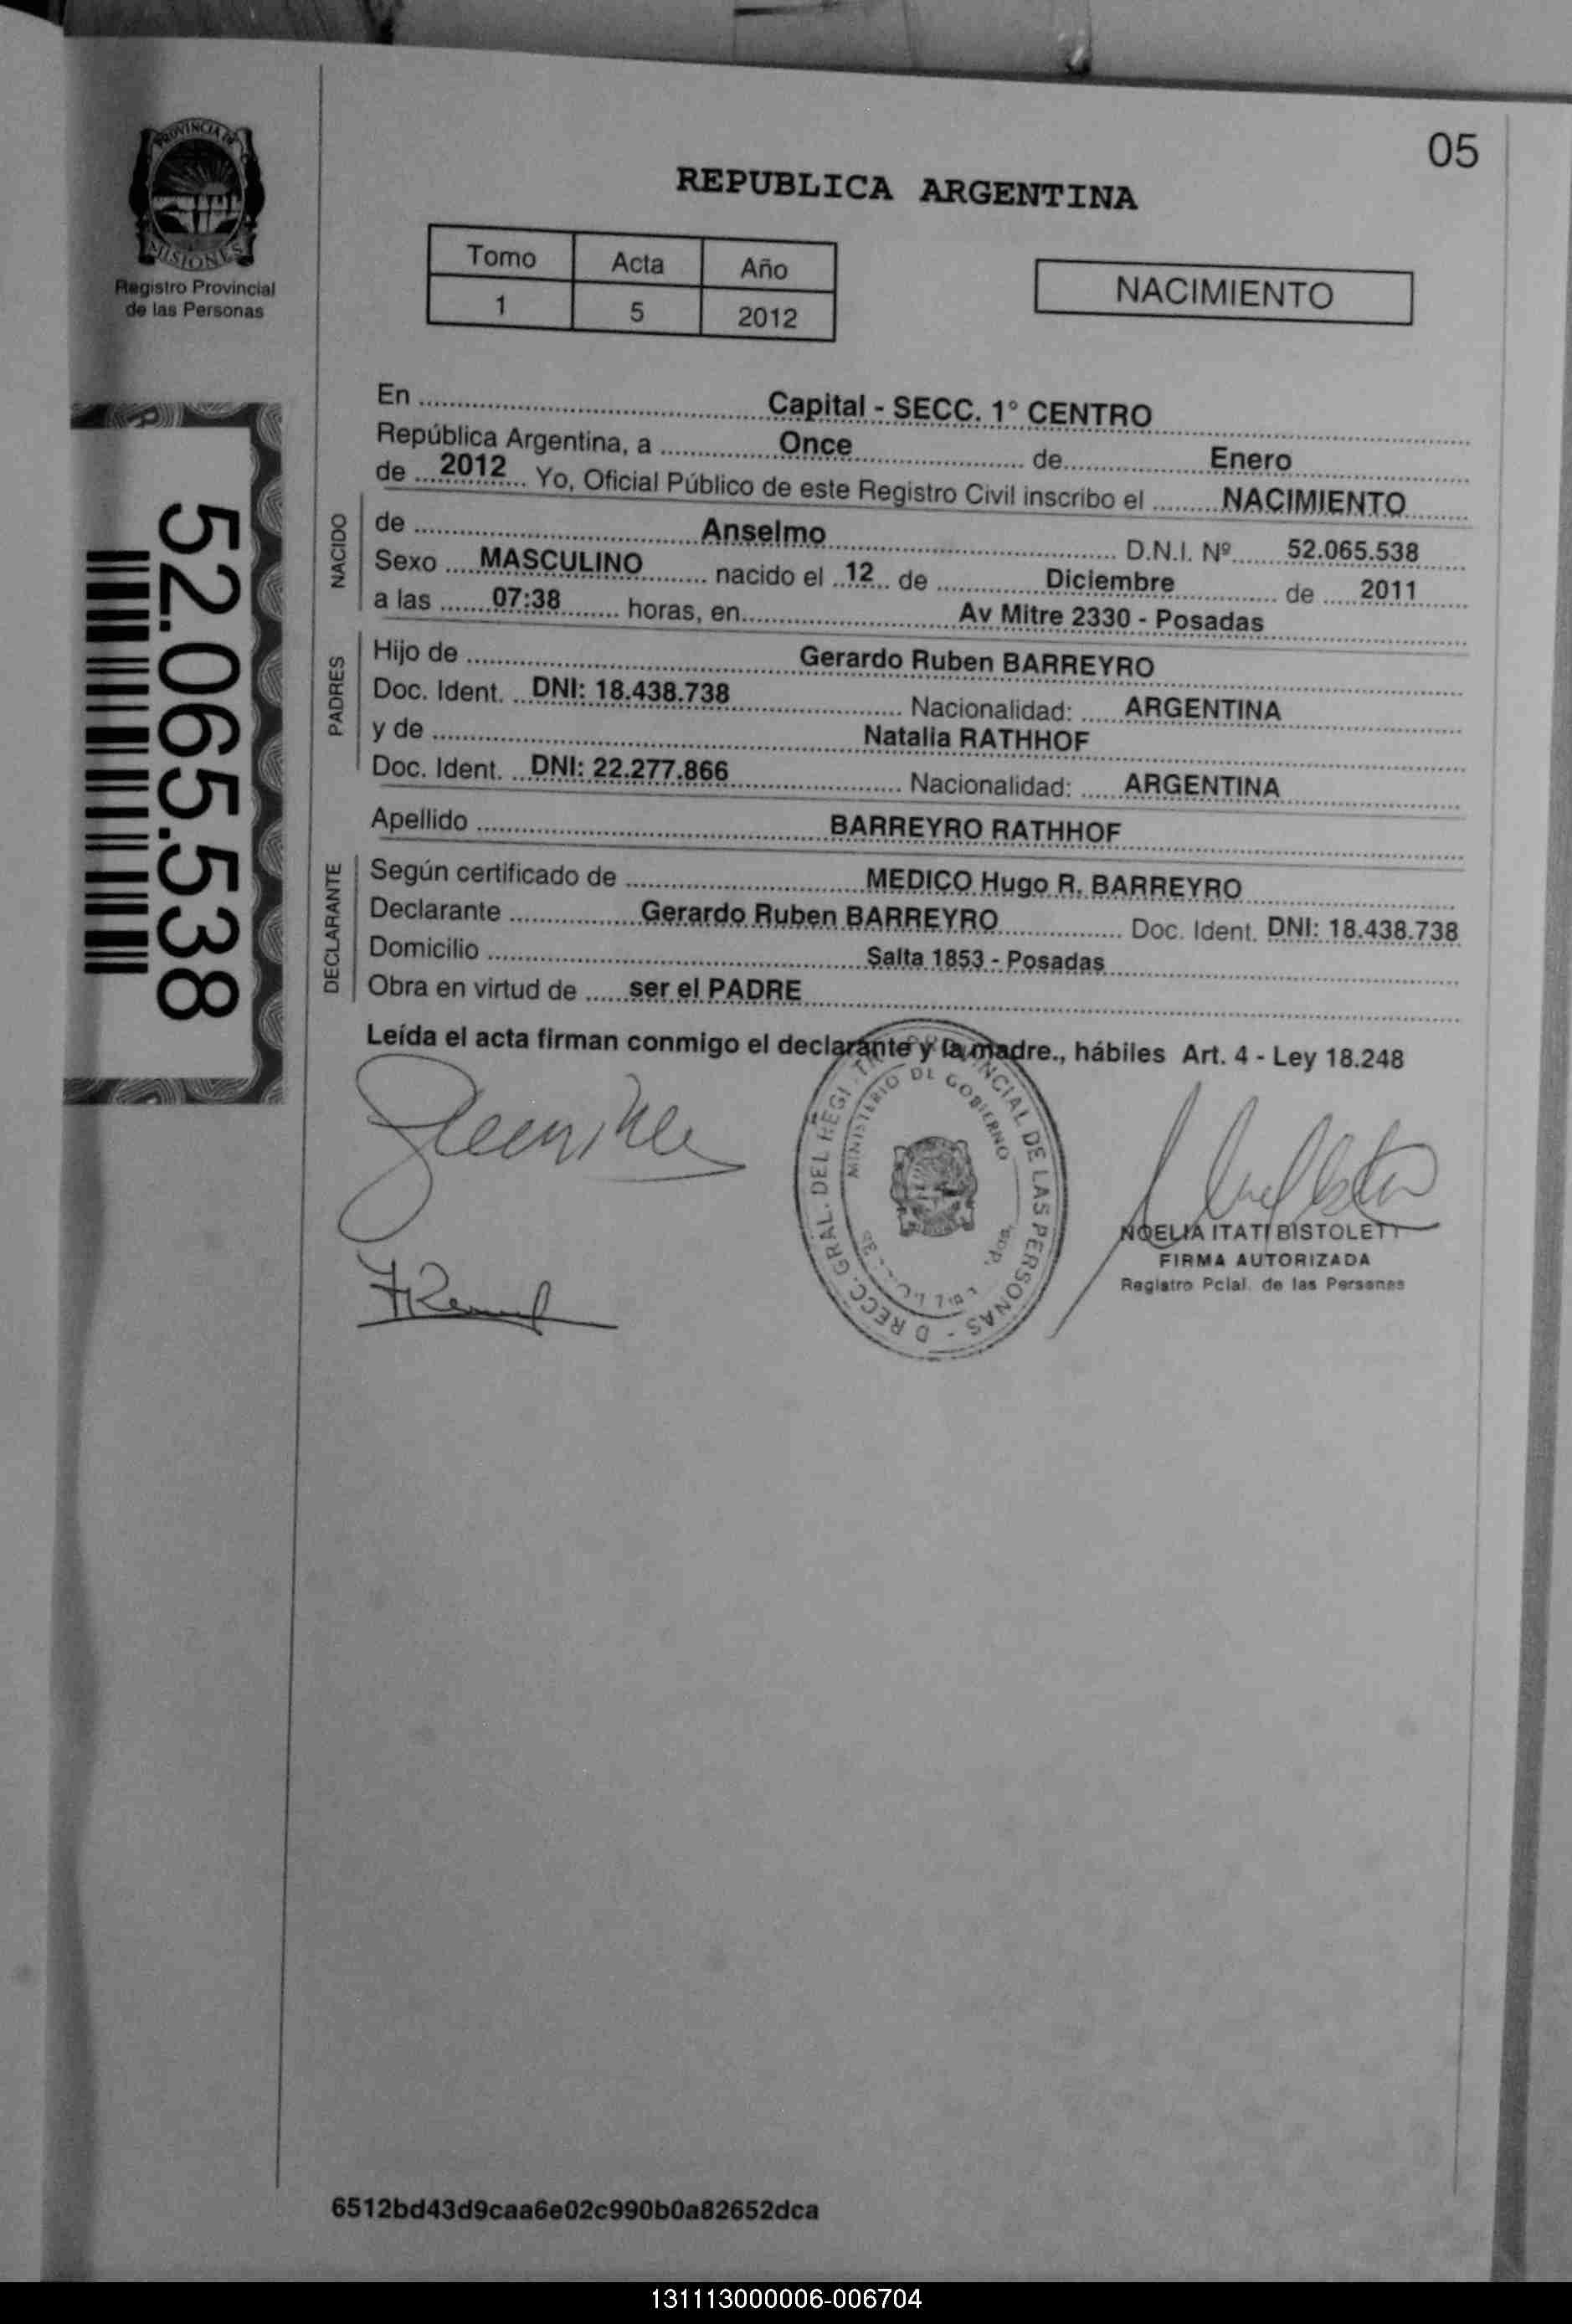 05
PROVINCIA DE
MISIONES
Registro Provincial
de las Personas
REPUBLICA ARGENTINA
Tomo Acta Año
1 5 2012
NACIMIENTO
52.065.538
En Capital - SECC. 1° CENTRO
República Argentina, a Once de Enero
de 2012 Yo, Oficial Público de este Registro Civil inscribo el NACIMIENTO
NACIDO
de Anselmo D.N.I. Nº 52.065.538
Sexo MASCULINO nacido el 12 de Diciembre de 2011
a las 07:38 horas, en Av Mitre 2330 - Posadas
PADRES
Hijo de Gerardo Ruben BARREYRO
Doc. Ident. DNI: 18.438.738 Nacionalidad: ARGENTINA
y de Natalia RATHHOF
Doc. Ident. DNI: 22.277.866 Nacionalidad: ARGENTINA
Apellido BARREYRO RATHHOF
DECLARANTE
Según certificado de MEDICO Hugo R. BARREYRO
Declarante Gerardo Ruben BARREYRO Doc. Ident. DNI: 18.438.738
Domicilio Salta 1853 - Posadas
Obra en virtud de ser el PADRE
Leída el acta firman conmigo el declarante y la madre., hábiles Art. 4 - Ley 18.248
MINISTERIO DE GOBIERNO
DE LAS PERSONAS
NOELIA ITATI BISTOLETTI
FIRMA AUTORIZADA
Registro Pcial. de las Personas
6512bd43d9caa6e02c990b0a82652dca
131113000006-006704